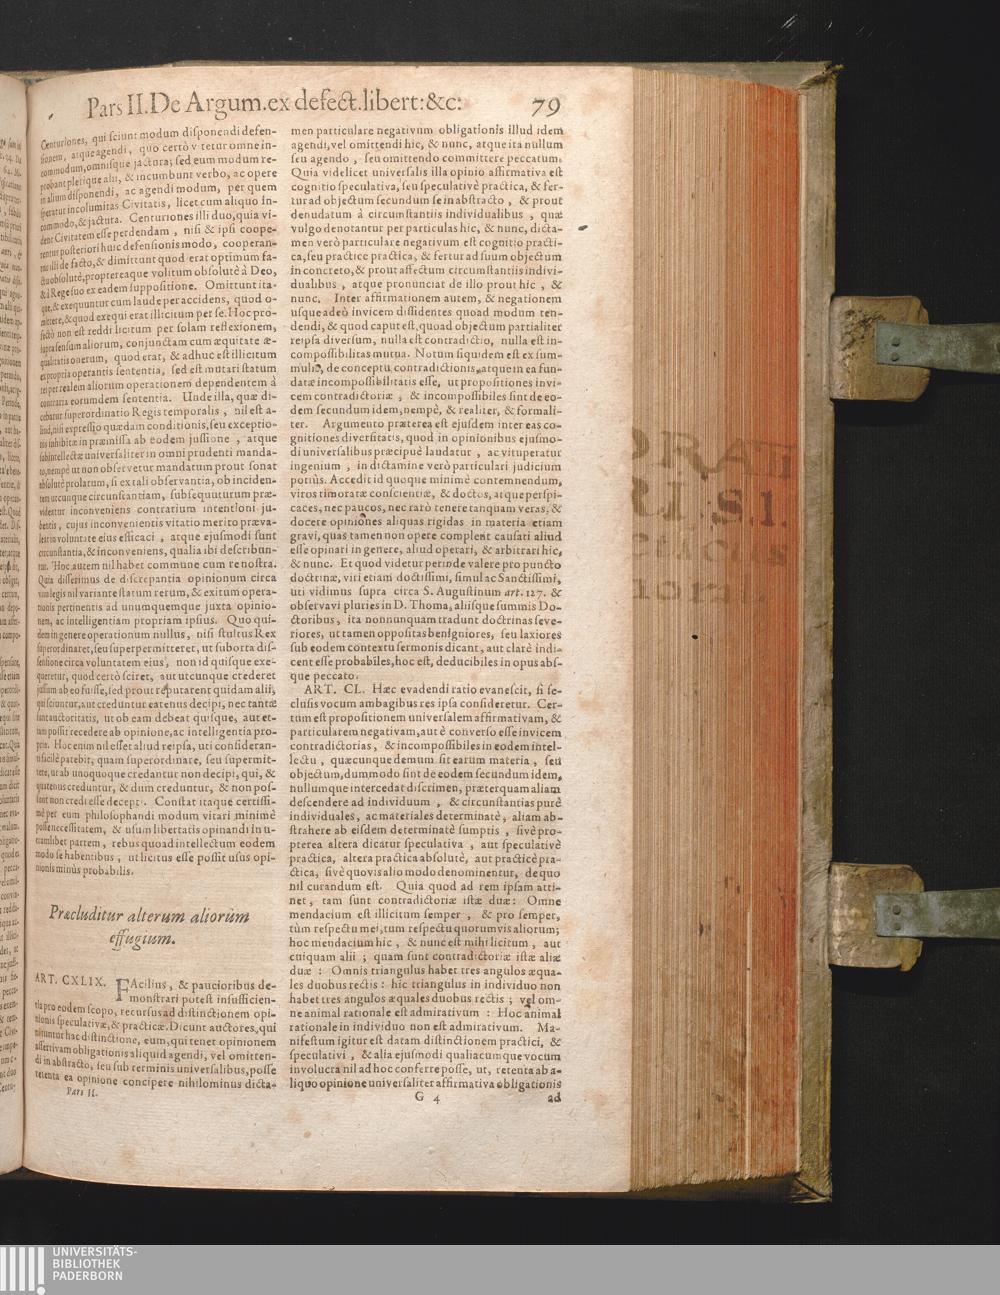 Pars II. De Argum. ex defect. libert: &c: 79
Centuriones, qui sciunt modum disponendi defen-
sionem, atque agendi, quo certò vitetur omne in-
commodum, omnisque jactura; sed eum modum re-
probant plerique alii, & incumbunt verbo, ac opere
in alium disponendi, ac agendi modum, per quem
speratur incolumitas Civitatis, licet cum aliquo in-
commodo, & jactura. Centuriones illi duo, quia vi-
dent Civitatem esse perdendam, nisi & ipsi coope-
rentur posteriori huic defensionis modo, cooperan-
tur illi de facto, & dimittunt quod erat optimum fa-
ctu obsolutè, proptereaque volitum obsolutè à Deo,
& à Rege suo ex eadem suppositione. Omittunt ita-
que, & exequuntur cum laude per accidens, quod o-
mittere, & quod exequi erat illicitum per se. Hoc pro-
fectò non est reddi licitum per solam reflexionem,
supra sensum aliorum, conjunctam cum æquitate æ-
qualitatis onerum, quod erat, & adhuc est illicitum
ex propria operantis sententia, sed est mutari statum
rei per realem aliorum operationem dependentem à
contraria eorumdem sententia. Unde illa, quæ di-
cebatur superordinatio Regis temporalis, nil est a-
liud, nisi expressio quædam conditionis, seu exceptio-
nis inhibitæ in præmissa ab eodem jussione, atque
subintellectæ universaliter in omni prudenti manda-
to, nempè ut non observetur mandatum prout sonat
absolutè prolatum, si ex tali observantia, ob inciden-
tem utcunque circunstantiam, subsequuturum præ-
videatur inconveniens contrarium intentioni ju-
bentis, cujus inconvenientis vitatio merito præva-
leat in voluntate eius efficaci, atque ejusmodi sunt
circunstantia, & inconveniens, qualia ibi describun-
tur. Hoc autem nil habet commune cum re nostra.
Quia disserimus de discrepantia opinionum circa
vim legis nil variante statum rerum, & exitum opera-
tionis pertinentis ad unumquemque juxta opinio-
nem, ac intelligentiam propriam ipsius. Quo qui-
dem in genere operationum nullus, nisi stultus Rex
superordinaret, seu superpermitteret, ut suborta dis-
sensione circa voluntatem eius, non id quisque exe-
queretur, quod certò sciret, aut utcunque crederet
jussum ab eo fuisse, sed prout reputarent quidam alii,
qui sciuntur, aut creduntur eatenus decipi, nec tantæ
sunt auctoritatis, ut ob eam debeat quisque, aut et-
iam possit recedere ab opinione, ac intelligentia pro-
pria. Hoc enim nil esset aliud reipsa, uti consideran-
ti facilè patebit, quam superordinare, seu supermit-
tere, ut ab unoquoque credantur non decipi, qui, &
quatenus creduntur, & dum creduntur, & non pos-
sunt non credi esse decepti. Constat itaque certissi-
mè per eum philosophandi modum vitari minimè
posse necessitatem, & usum libertatis opinandi in u-
tramlibet partem, rebus quoad intellectum eodem
modo se habentibus, ut licitus esse possit usus opi-
nionis minùs probabilis.
Præcluditur alterum aliorùm
effugium.
ART. CXLIX. FAcilius, & paucioribus de-
monstrari potest insufficien-
tia pro eodem scopo, recursus ad distinctionem opi-
nionis speculativæ, & practicæ. Dicunt auctores, qui
nituntur hac distinctione, eum, qui tenet opinionem
assertivam obligationis aliquid agendi, vel omitten-
di in abstracto, seu sub terminis universalibus, posse
retenta ea opinione concipere nihilominus dicta-
Pars II.
men particulare negativum obligationis illud idem
agendi, vel omittendi hic, & nunc, atque ita nullum
seu agendo, seu omittendo committere peccatum.
Quia videlicet universalis illa opinio affirmativa est
cognitio speculativa, seu speculativè practica, & fer-
tur ad objectum secundum se in abstracto, & prout
denudatum à circumstantiis individualibus, quæ
vulgo denotantur per particulas hic, & nunc, dicta-
men verò particulare negativum est cognitio practi-
ca, seu practice practica, & fertur ad suum objectum
in concreto, & prout affectum circumstantiis indivi-
dualibus, atque pronunciat de illo prout hic, &
nunc. Inter affirmationem autem, & negationem
usque adeò invicem dissidentes quoad modum ten-
dendi, & quod caput est, quoad objectum partialiter
reipsa diversum, nulla est contradictio, nulla est in-
compossibilitas mutua. Notum siquidem est ex sum-
mulis, de conceptu contradictionis, atque in ea fun-
datæ incompossibilitatis esse, ut propositiones invi-
cem contradictoriæ, & incompossibiles sint de eo-
dem secundum idem, nempè, & realiter, & formali-
ter. Argumento præterea est ejusdem inter eas co-
gnitiones diversitatis, quod in opinionibus ejusmo-
di universalibus præcipuè laudatur, ac vituperatur
ingenium, in dictamine verò particulari judicium
potiùs. Accedit id quoque minimè contemnendum,
viros timoratæ conscientiæ, & doctos, atque perspi-
caces, nec paucos, nec rarò tenere tanquam veras, &
docere opiniones aliquas rigidas in materia etiam
gravi, quas tamen non opere complent causati aliud
esse opinari in genere, aliud operari, & arbitrari hic,
& nunc. Et quod videtur perinde valere pro puncto
doctrinæ, viri etiam doctissimi, simul ac Sanctissimi,
uti vidimus supra circa S. Augustinum art. 127. &
observavi pluries in D. Thoma, aliisque summis Do-
ctoribus, ita nonnunquam tradunt doctrinas seve-
riores, ut tamen oppositas benigniores, seu laxiores
sub eodem contextu sermonis dicant, aut clarè indi-
cent esse probabiles, hoc est, deducibiles in opus abs-
que peccato.
ART. CL. Hæc evadendi ratio evanescit, si se-
clusis vocum ambagibus res ipsa consideretur. Cer-
tum est propositionem universalem affirmativam, &
particularem negativam, aut è converso esse invicem
contradictorias, & incompossibiles in eodem intel-
lectu, quæcunque demum sit earum materia, seu
objectum, dummodo sint de eodem secundum idem,
nullumque intercedat discrimen, præterquam aliam
descendere ad individuum, & circunstantias purè
individuales, ac materiales determinatè, aliam ab-
strahere ab eisdem determinatè sumptis, sivè pro-
pterea altera dicatur speculativa, aut speculativè
practica, altera practica absolutè, aut practicè pra-
ctica, sivè quovis alio modo denominentur, de quo
nil curandum est. Quia quod ad rem ipsam atti-
net, tam sunt contradictoriæ istæ duæ: Omne
mendacium est illicitum semper, & pro semper,
tùm respectu mei, tum respectu quorumvis aliorum;
hoc mendacium hic, & nunc est mihi licitum, aut
cuiquam alii; quam sunt contradictoriæ istæ aliæ
duæ: Omnis triangulus habet tres angulos æqua-
les duobus rectis: hic triangulus in individuo non
habet tres angulos æquales duobus rectis; vel om-
ne animal rationale est admirativum: Hoc animal
rationale in individuo non est admirativum. Ma-
nifestum igitur est datam distinctionem practici, &
speculativi, & alia ejusmodi qualiacumque vocum
involucra nil ad hoc conferre posse, ut, retenta ab a-
liquo opinione universaliter affirmativa obligationis
G 4 ad
UNIVERSITÄTS-
BIBLIOTHEK
PADERBORN